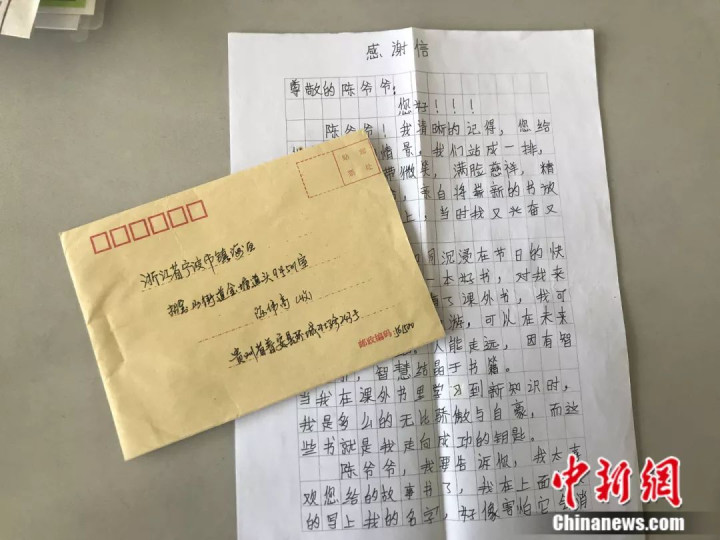 感谢信
尊敬的陈爷爷:
您好!!!
陈爷爷!我清晰的记得,您给
情景,我们站成一排,
微笑,满脸慈祥,精
亲自将崭新的书放
上,当时我又兴奋又
同沉浸在节日的快
一本好书,对我来
有了课外书,我可
游,可以在未来
人能走远,因有智
智慧结晶于书籍。
当我在课外书里学习到新知识时,
我是多么的无比骄傲与自豪,而这
些书就是我走向成功的钥匙。
陈爷爷,我要告诉您,我太喜
欢您给的故事书了,我在上面
的写上我的名字,好像害怕它 消
贴邮
票处
浙江省宁波市镇海区
招宝山街道金塘道头
陈伟高(收)
贵州省普安县环城
邮政编码:
中新网
Chinanews.com